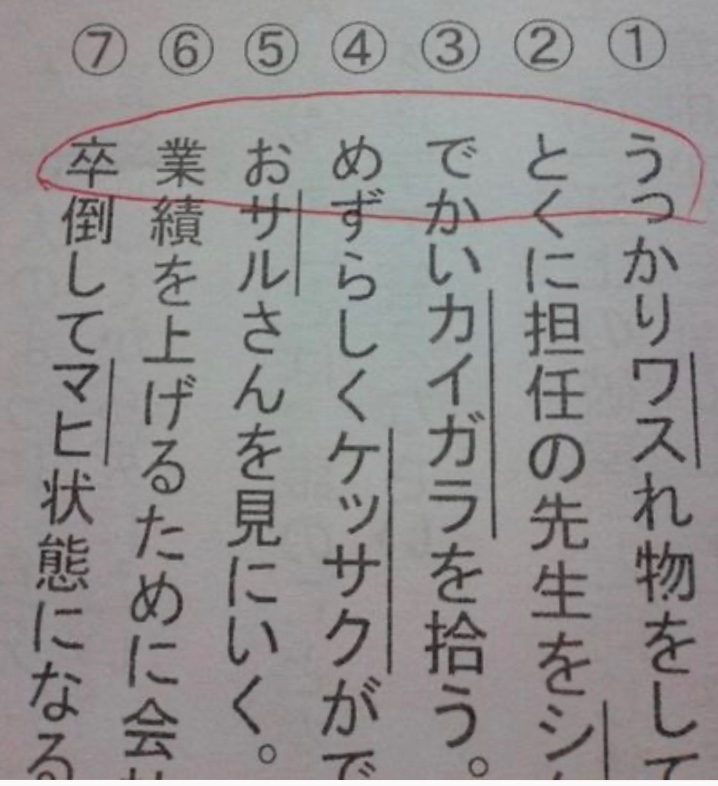 ① うっかりワスれ物をして
② とくに担任の先生をシ
③ でかいカイガラを拾う。
④ めずらしくケッサクがで
⑤ おサルさんを見にいく。
⑥ 業績を上げるために会
⑦ 卒倒してマヒ状態になる